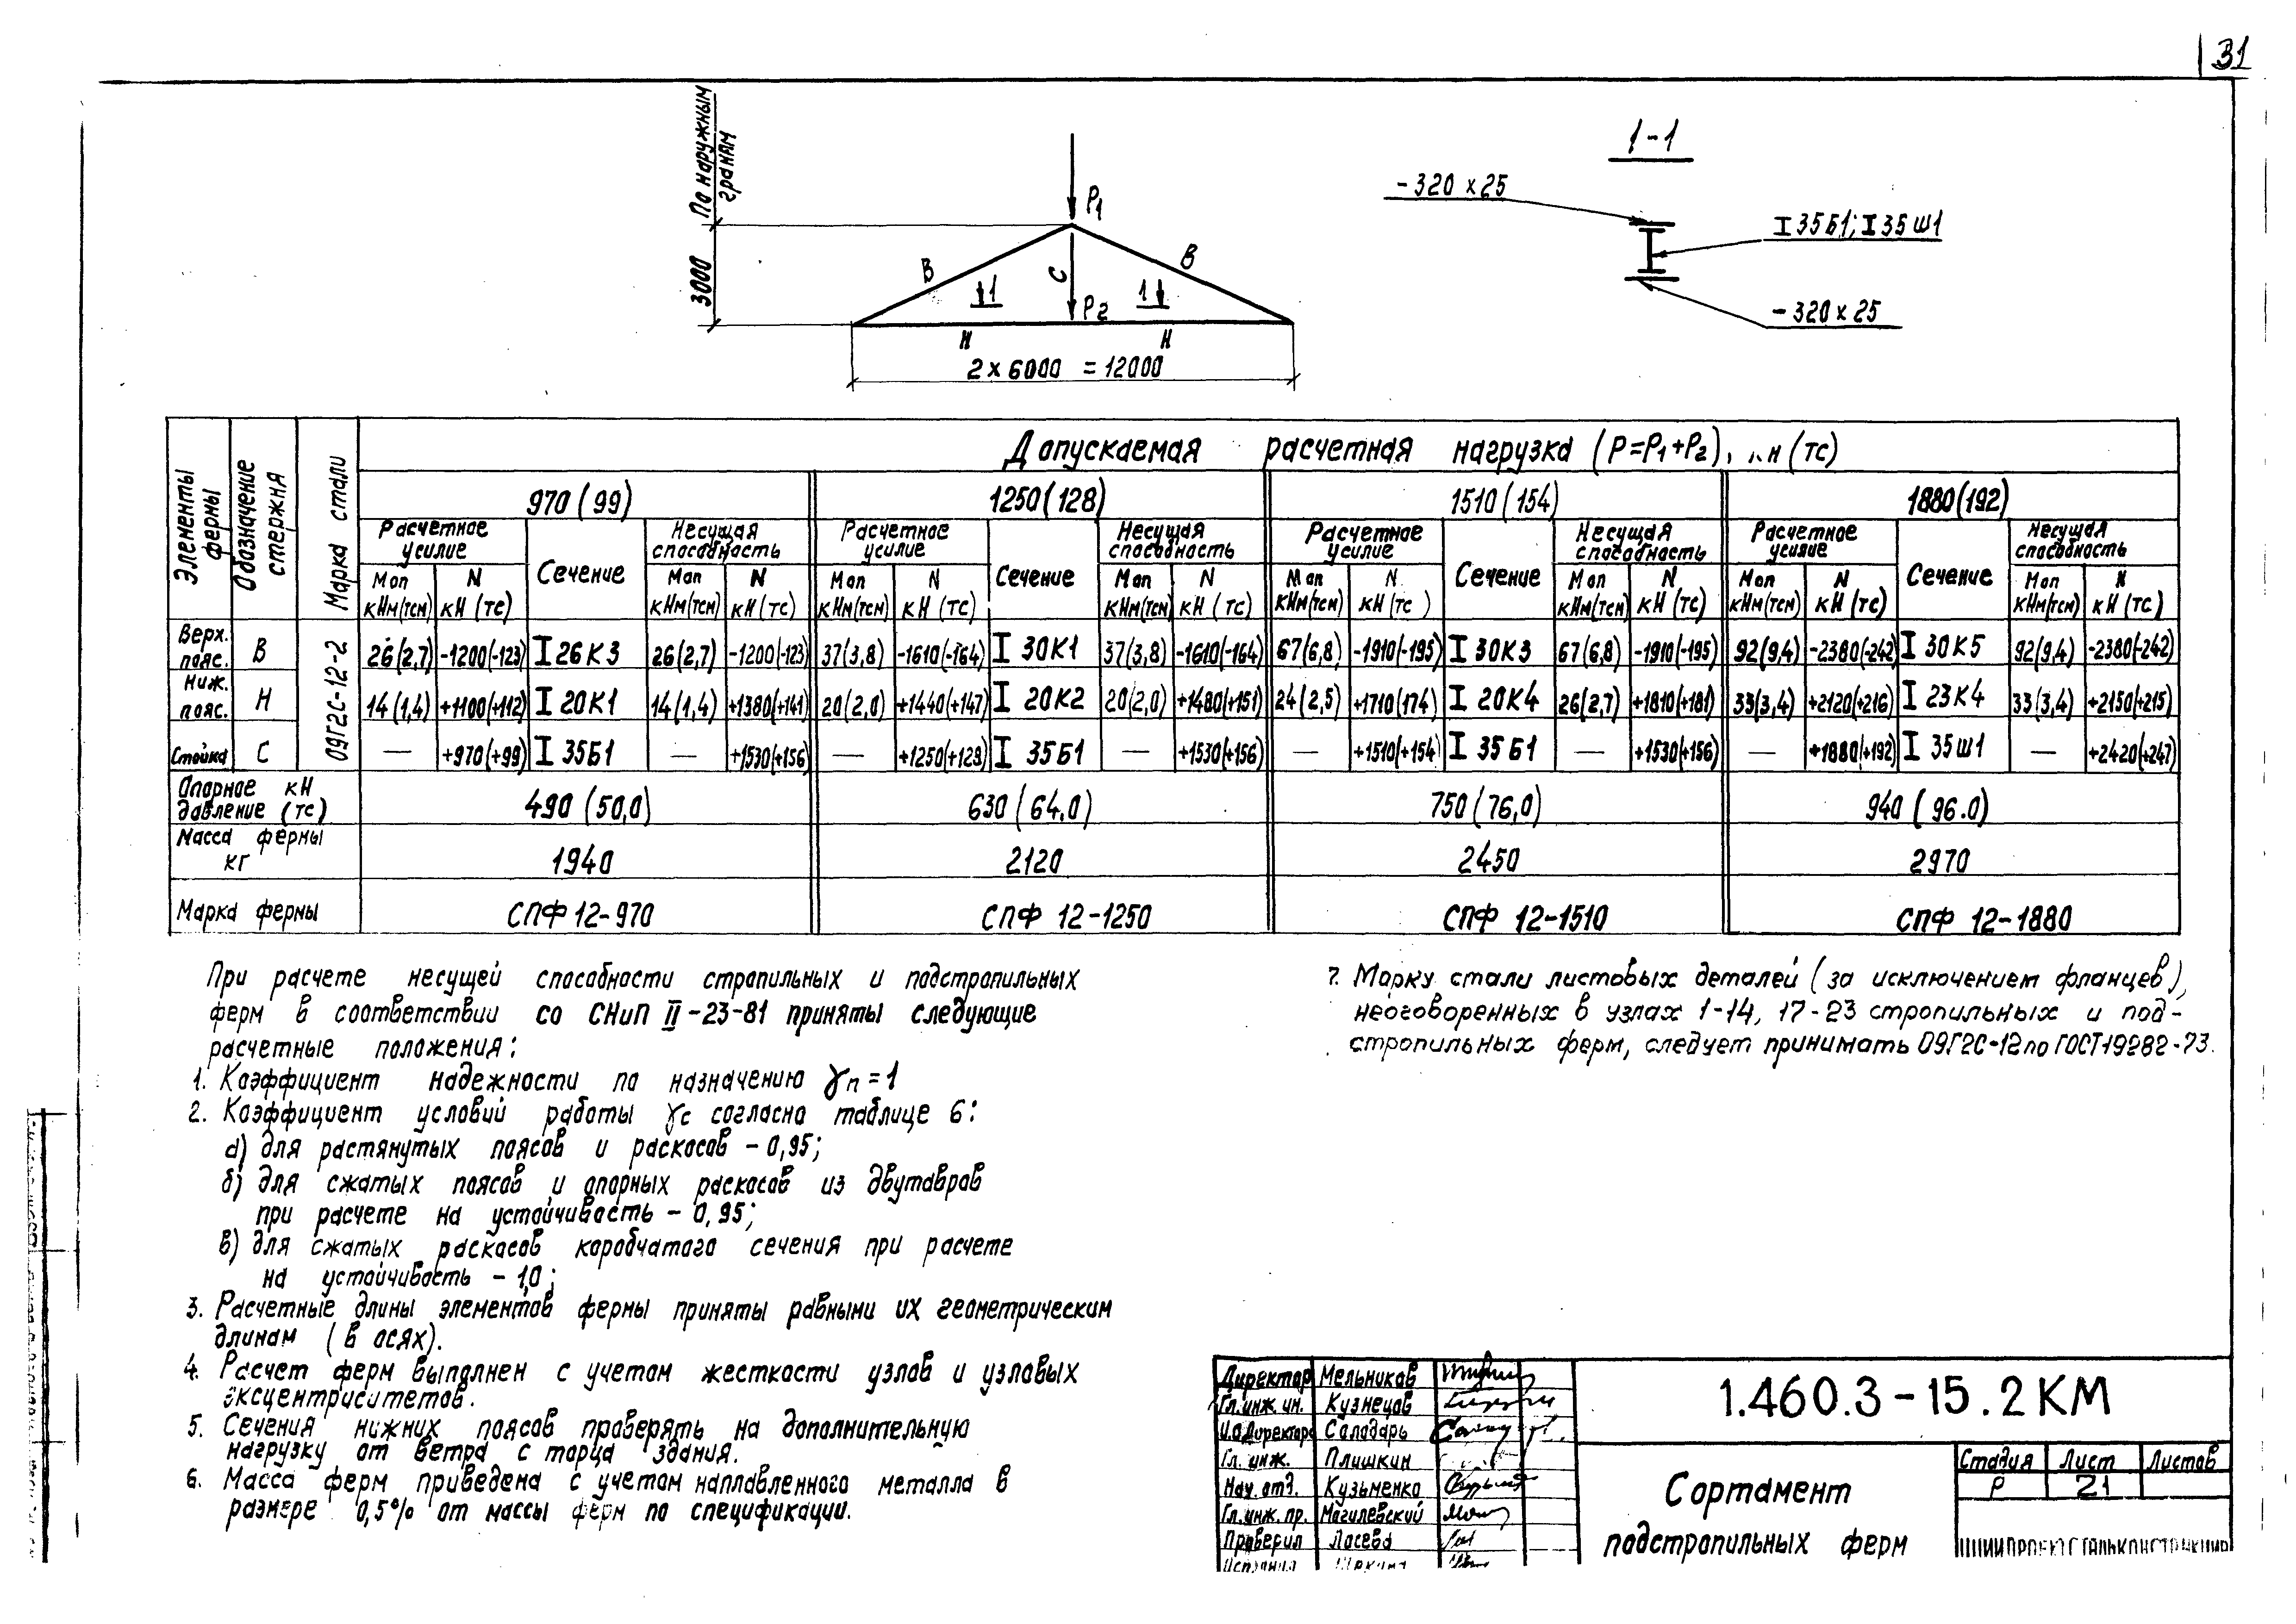 31
По наружным
граням
3000
P1
В
В
С
1
1
P2
Н
Н
2 x 6000 = 12000
1-1
-320 x 25
I 35Б1; I 35Ш1
-320 x 25
Элементы фермы
Обозначение стержня
Марка стали
Допускаемая расчетная нагрузка (P=P1+P2), кН (тс)
970 (99)
1250 (128)
1510 (154)
1880 (192)
Расчетное усилие
Сечение
Несущая способность
Расчетное усилие
Сечение
Несущая способность
Расчетное усилие
Сечение
Несущая способность
Расчетное усилие
Сечение
Несущая способность
Mоп кНм(тсм)
N кН (тс)
Mоп кНм(тсм)
N кН (тс)
Mоп кНм(тсм)
N кН (тс)
Mоп кНм(тсм)
N кН (тс)
Mоп кНм(тсм)
N кН (тс)
Mоп кНм(тсм)
N кН (тс)
Mоп кНм(тсм)
N кН (тс)
Mоп кНм(тсм)
N кН (тс)
09Г2С-12-2
Верх. пояс. В 26(2,7) -1200(-123) I 26К3 26(2,7) -1200(-123) 37(3,8) -1610(-164) I 30К1 37(3,8) -1610(-164) 67(6,8) -1910(-195) I 30К3 67(6,8) -1910(-195) 92(9,4) -2380(-242) I 30К5 92(9,4) -2380(-242)
Ниж. пояс. Н 14(1,4) +1100(+112) I 20К1 14(1,4) +1380(+141) 20(2,0) +1440(+147) I 20К2 20(2,0) +1480(+151) 24(2,5) +1710(174) I 20К4 26(2,7) +1810(+181) 33(3,4) +2120(+216) I 23К4 33(3,4) +2150(+215)
Стойка С — +970(+99) I 35Б1 — +1530(+156) — +1250(+129) I 35Б1 — +1530(+156) — +1510(+154) I 35Б1 — +1530(+156) — +1880(+192) I 35Ш1 — +2420(+247)
Опорное кН давление (тс) 490 (50,0) 630 (64,0) 750 (76,0) 940 (96.0)
Масса фермы кг 1940 2120 2450 2970
Марка фермы СПФ 12-970 СПФ 12-1250 СПФ 12-1510 СПФ 12-1880
При расчете несущей способности стропильных и подстропильных
ферм в соответствии со СНиП II-23-81 приняты следующие
расчетные положения:
1. Коэффициент надежности по назначению γп = 1
2. Коэффициент условий работы γс согласно таблице 6:
а) для растянутых поясов и раскосов - 0,95;
б) для сжатых поясов и опорных раскосов из двутавров
при расчете на устойчивость - 0,95;
в) для сжатых раскосов коробчатого сечения при расчете
на устойчивость - 1,0;
3. Расчетные длины элементов фермы приняты равными их геометрическим
длинам (в осях).
4. Расчет ферм выполнен с учетом жесткости узлов и узловых
эксцентриситетов.
5. Сечения нижних поясов проверять на дополнительную
нагрузку от ветра с торца здания.
6. Масса ферм приведена с учетом наплавленного металла в
размере 0,5% от массы ферм по спецификации.
7. Марку стали листовых деталей (за исключением фланцев),
неоговоренных в узлах 1-14, 17-23 стропильных и под-
стропильных ферм, следует принимать 09Г2С-12 по ГОСТ 19282-73.
Директор Мельников
Гл. инж. ин. Кузнецов
И.О.Директора Саладарь
Гл. инж. Плишкин
Нач. отд. Кузьменко
Гл. инж. пр. Магилевский
Проверил Лосева
1.460.3-15.2КМ
Сортамент
подстропильных ферм
Стадия Лист Листов
Р 21
ЦНИИПРОЕКТСТАЛЬКОНСТРУКЦИЯ